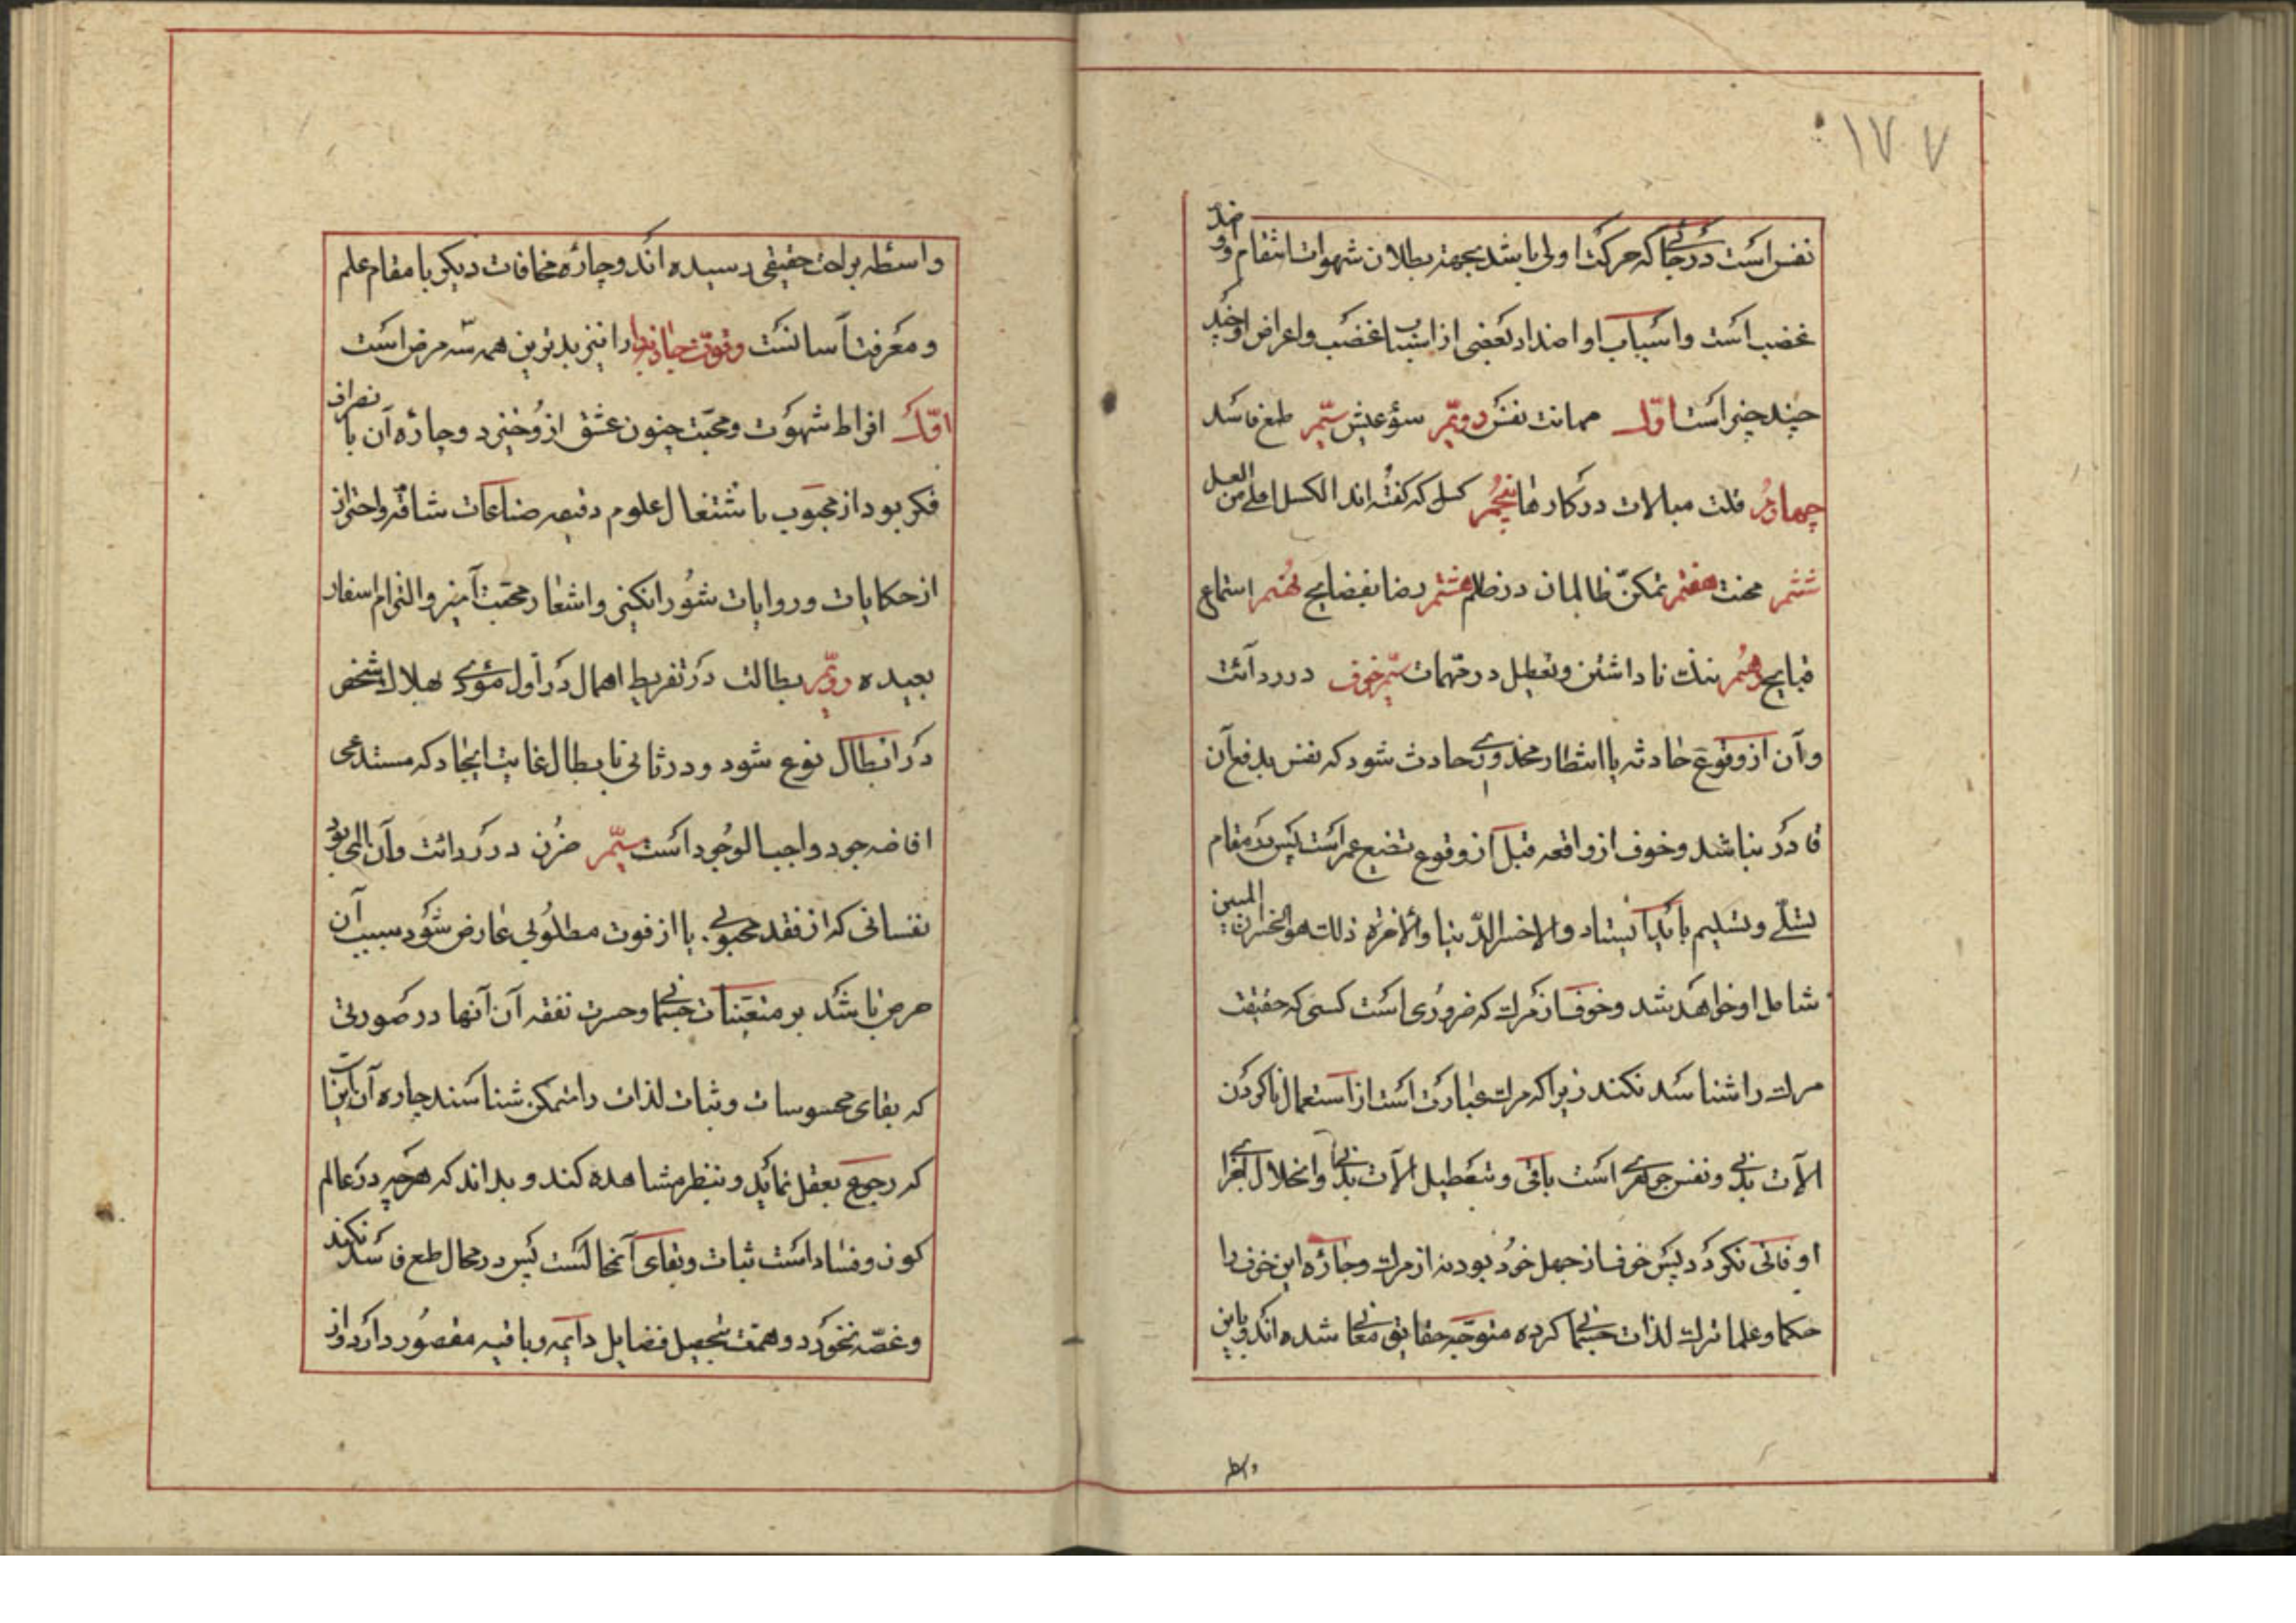 ١٧٧
نفس است در جائی که حرکت اولی باشد بجهته بطلان شهوات انتقام و او ضدّ
غضب است و اسباب او اضداد بعضی از اسباب غضب و اعراض او چند
چیز است اوّل مهانت نفس دویّم سؤ عیش سیّم طمع فاسد
چهارم قلت مبالات در کارها پنجم کسل که کفته اند الکسل احلی من العسل
ششم محنت هفتم تمکنّ ظالمان در ظلم هشتم رضا بفضایح نهم استماع
قبایح دهم ننک نا داشتن و تعطیل در مهمات سیّم خوف در ردائت
و آن از وقوع حادثه یا انتظار محذوری حادث شود که نفس بدفع آن
قادر نباشد و خوف از واقعه قبل از وقوع تضیع عمر است پس در مقام
تسلّی و تسلیم باید ایستاد و الا خسر الدّنیا و الاخرة ذلك هو الخسران المبین
شامل او خواهد شد و خوف از مرك که ضروری است کسی که حقیقت
مرك را شناسد نکند زیرا که مرك عبارت است از استعمال ناکردن
الآت بدنی و نفس جوهری است باقی و بتعطیل الآت بدنی و انحلال اجزا
او فانی نکردد پس خوف از جهل خود بود نه از مرك و چاره این خوف را
حکما و علما ترك لذات جسمانی کرده متوجّه حقایق معانی شده اند و باین
واسطه
واسطه براحت حقیقی رسیده اند و چاره مخافات دیکر با مقام علم
و معرفت آسانست و قوّت جاذبه را نیز بدترین همه سّه مرض است
اوّل افراط شهوت و محبّت چنون عشق از و خیزد و چاره آن با نصراف
فکر بود از محبوب باشتغال علوم دقیقه صناعات شاقه و احتراز
از حکایات و روایات شورانکیز و اشعار محبّت آمیز و التزام اسفار
بعیده دویّم بطالت در تفریط اهمال در اول مؤدی بهلاك شخص
در ابطال نوع شود و در ثانی با بطال غایت ایجاد که مستدعی
افاضه جود واجب الوجود است سیّم حزن در ردائت و آن المی بود
نفسانی که از فقد محبوبی یا از فوت مطلوبی عارض شود سبب آن
حرص باشد بر متعینات جسمانی و حسرت نفقه آن آنها در صورتی
که بقای محسوسات و ثبات لذات را ممکن شناسند چاره آن اینست
که رجوع بعقل نماید و بنظر مشاهده کند و بداند که هرچه در عالم
کون و فساد است ثبات و بقای آن محالست پس در محال طمع فاسد نکند
و غصّه نخورد و همّت بتحصیل فضایل دایمه و باقیه مقصور دارد و از